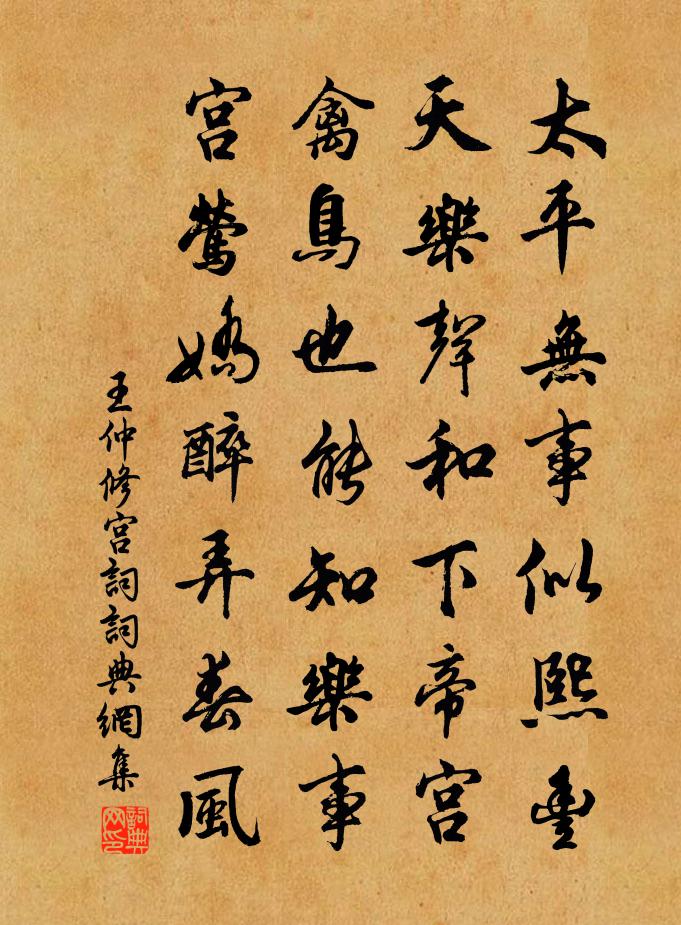 太平無事似熙豐
天樂聲和下帝宮
禽鳥也能知樂事
宮鶯嬌醉弄春風
王仲修宮詞詞典網集
詞典网印